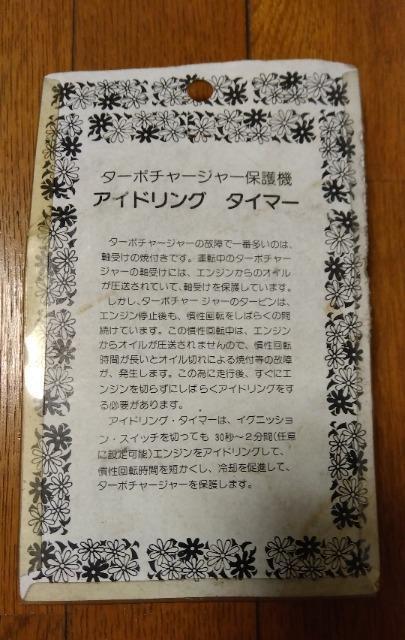 ターボチャージャー保護機
アイドリング　タイマー
ターボチャージャーの故障で一番多いのは、
軸受けの焼付きです。運転中のターボチャー
ジャーの軸受けには、エンジンからのオイル
が圧送されていて、軸受けを保護しています。
しかし、ターボチャー ジャーのタービンは、
エンジン停止後も、慣性回転をしばらくの間
続けています。この慣性回転中は、エンジン
からオイルが圧送されませんので、慣性回転
時間が長いとオイル切れによる焼付等の故障
が、発生します。この為に走行後、すぐにエ
ンジンを切らずにしばらくアイドリングをす
る必要があります。
アイドリング・タイマーは、イグニッショ
ン・スイッチを切っても 30秒～2分間(任意
に設定可能)エンジンをアイドリングして、
慣性回転時間を短かくし、冷却を促進して、
ターボチャージャーを保護します。